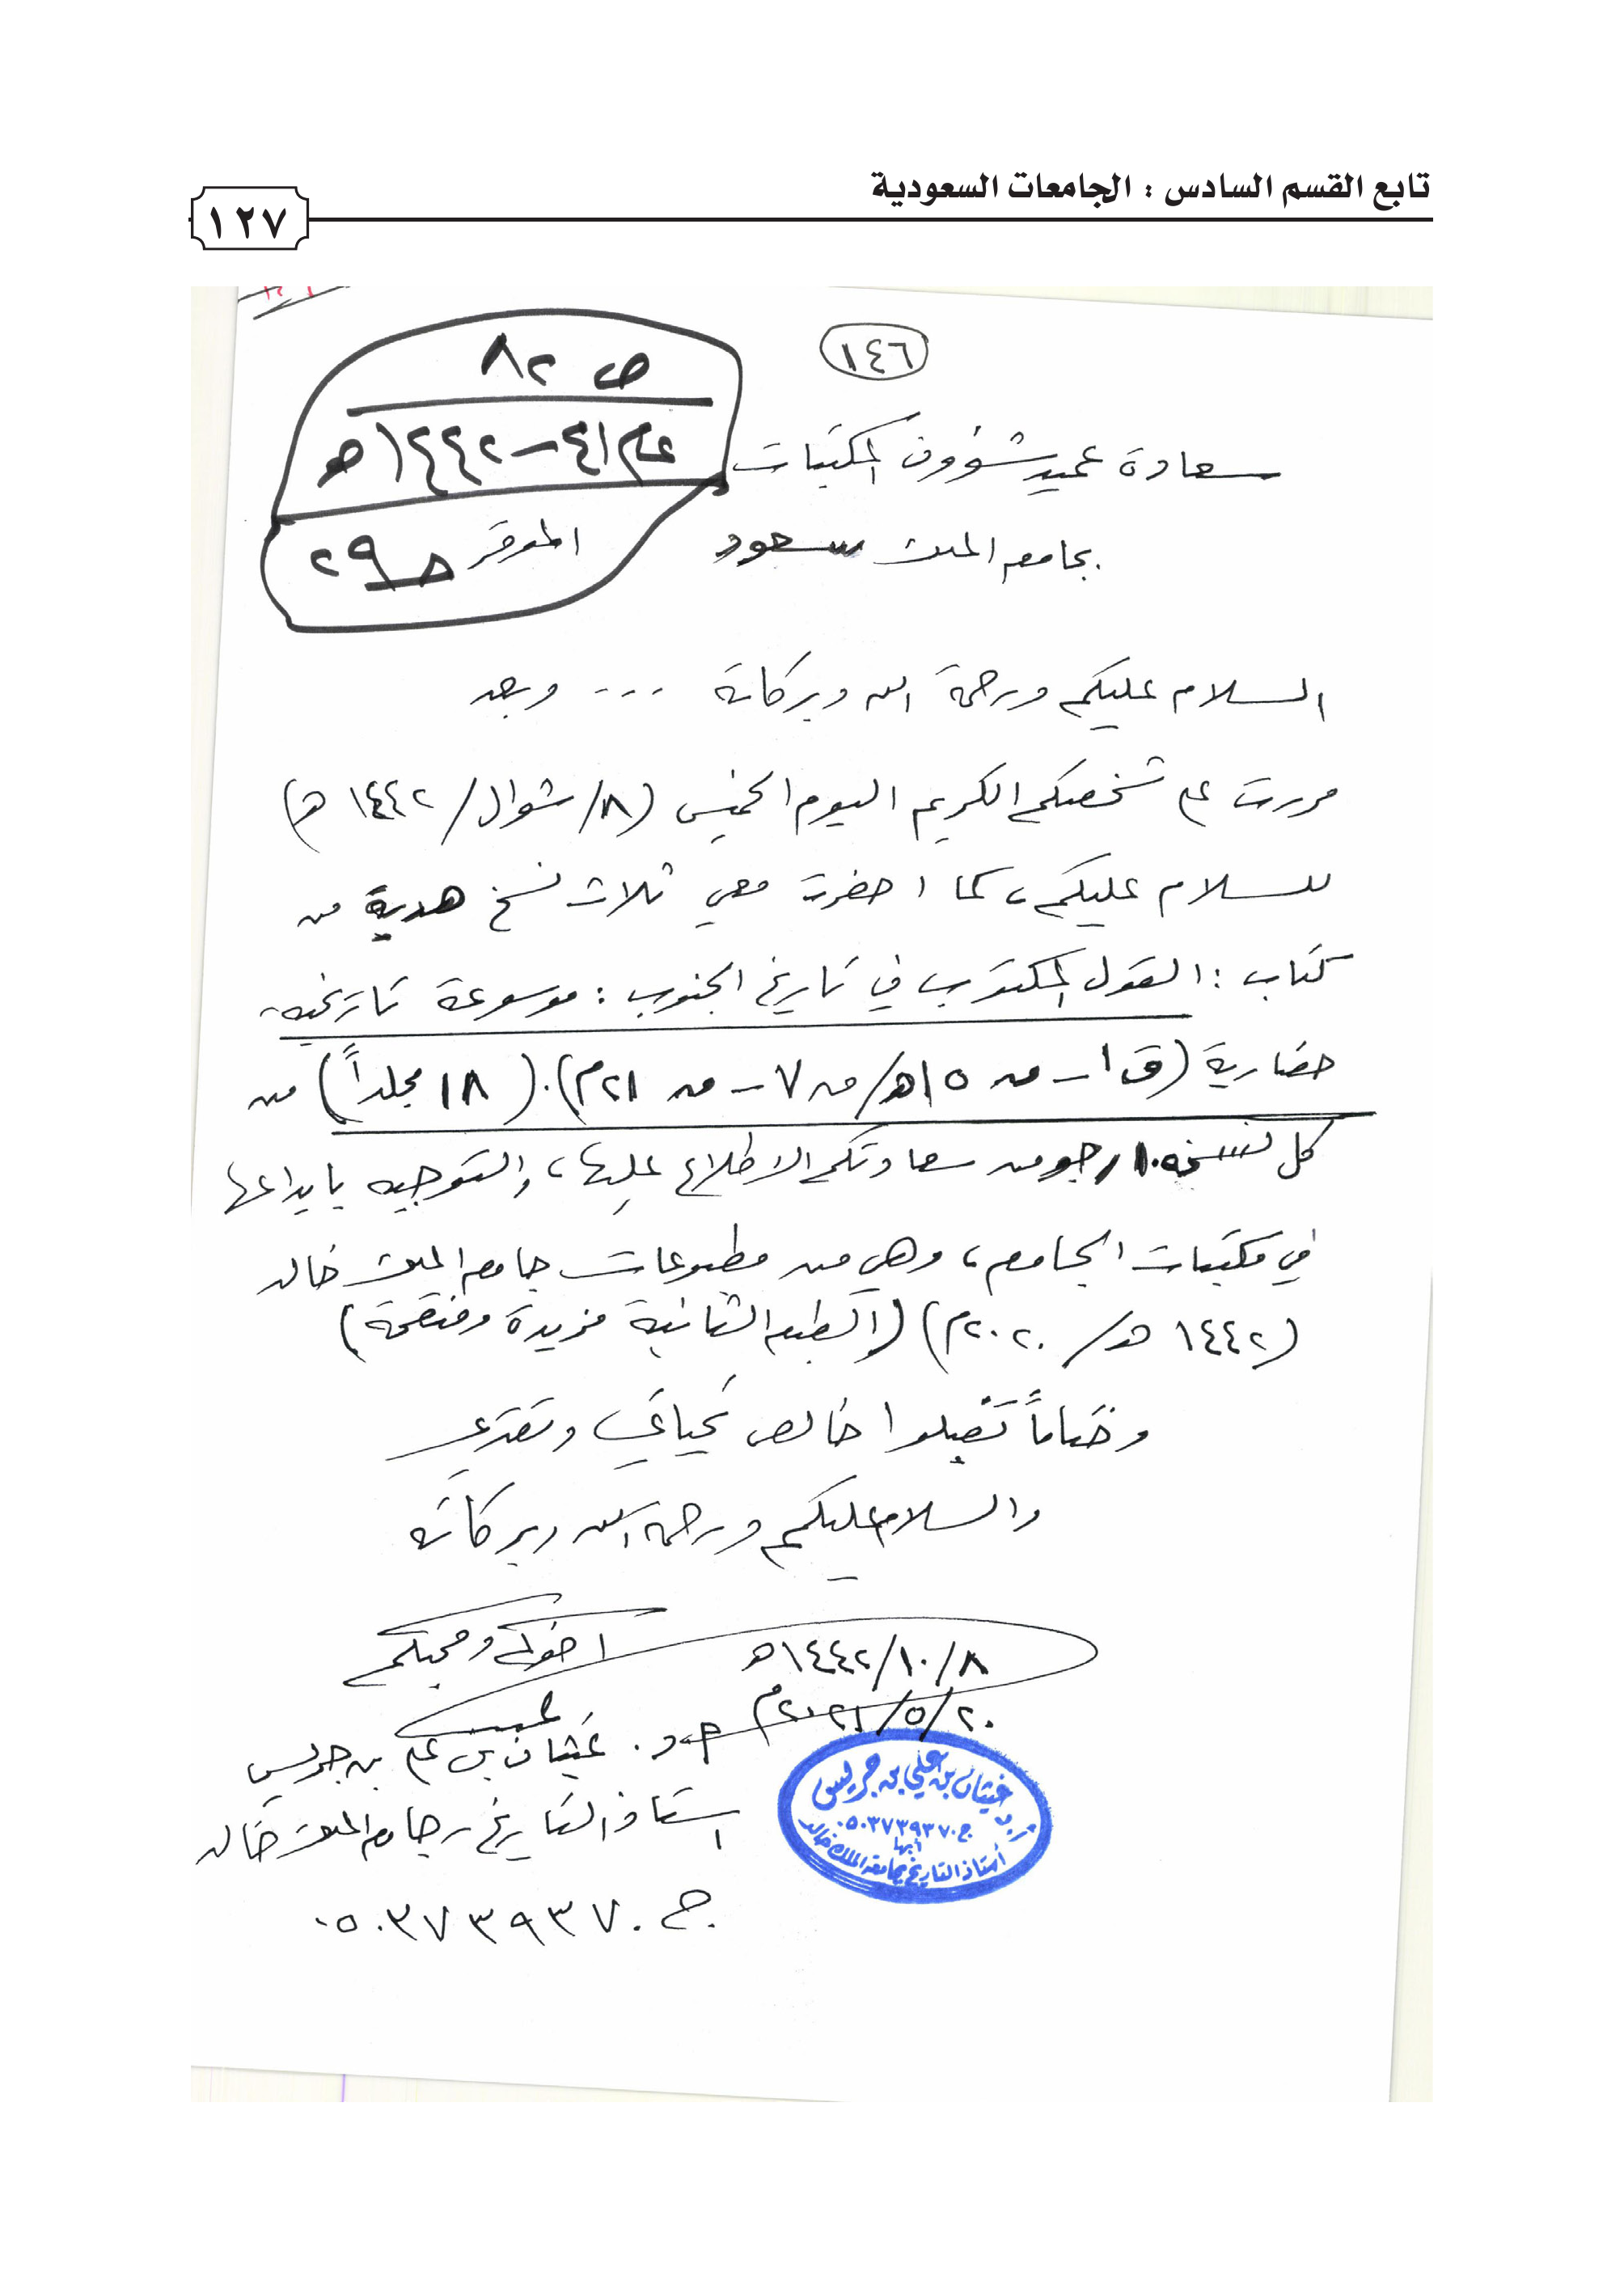 تابع القسم السادس : الجامعات السعودية
١٢٧
١٤٦
ص ٨٢
عام ٤١-١٤٤٢هـ
حـ٢٩
سعادة عميد شؤون المكتبات
بجامعة الملك سعود الموقر
السلام عليكم ورحمة الله وبركاته ... وبعد
مررت على شخصكم الكريم اليوم الخميس (٨/شوال/١٤٤٢هـ)
للسلام عليكم، كما احضرت معي ثلاث نسخ هدية من
كتاب : القول المكتوب في تاريخ الجنوب : موسوعة تاريخية
حضارية (ق١-ق١٥هـ/ق٧-ق٢١م). (١٨ مجلداً) من
كل نسخة. ارجو من سعادتكم الاطلاع عليها، والتوجيه بايداعها
في مكتبات الجامعة، وهي من مطبوعات جامعة الملك خالد
(١٤٤٢هـ/٢٠٢٠م) (الطبعة الثانية مزيدة ومنقحة)
وختاماً تقبلوا خالص تحياتي وتقديري
والسلام عليكم ورحمة الله وبركاته
اخوكم ومحبكم
٨/١٠/١٤٤٢هـ
٢٠/٥/٢٠٢١م
أ.د. غيثان بن علي بن جريس
استاذ التاريخ بجامعة الملك خالد
ج ٠٥٠٣٧٣٩٣٧٠
أ.د. غيثان بن علي بن جريس
ج ٠٥٠٣٧٣٩٣٧٠
أبها
أستاذ التاريخ بجامعة الملك خالد